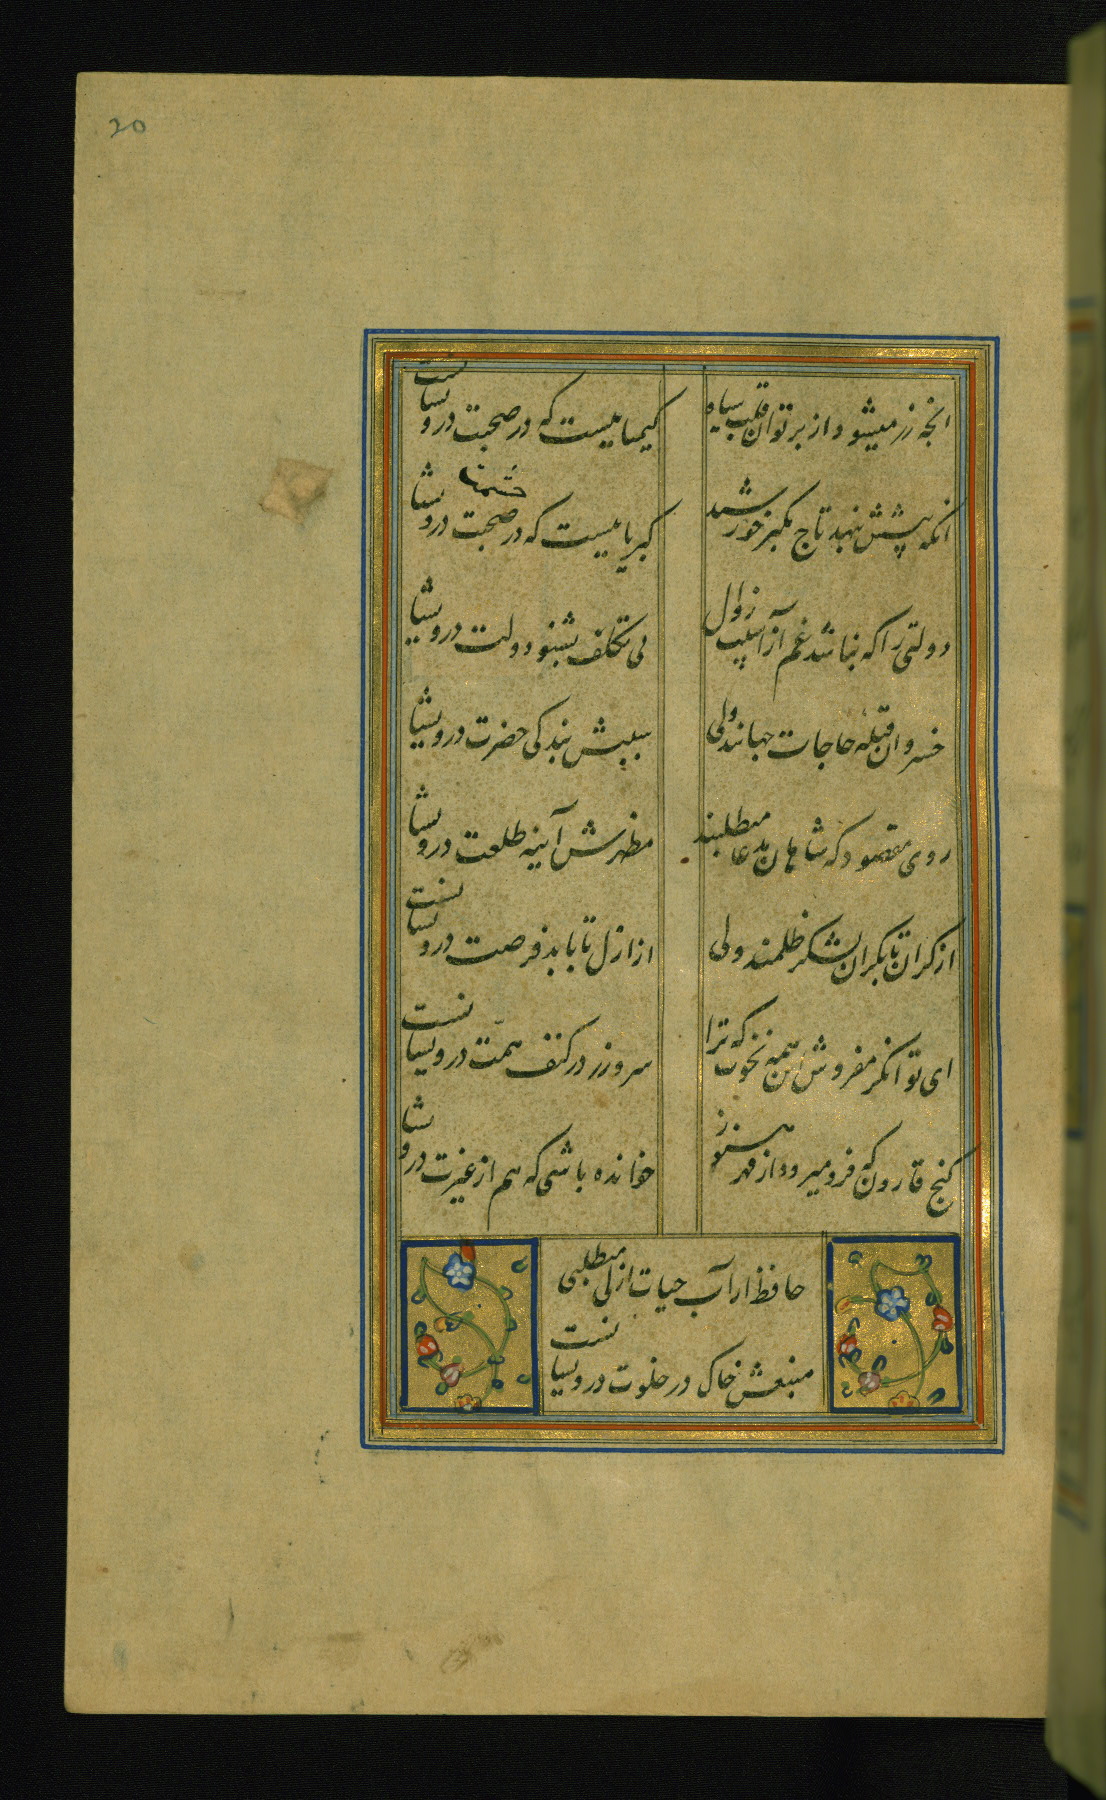 20
انجه زر میشود از برتو ان قلب سیاه
کیمیاییست که در صحبت درویشانست
انکه پیشش بنهد تاج تکبر خورشید
کبریاییست که در صحبت درویشا
حشمت
دولتی را که نباشد غم از آسیب زوال
بی تکلف بشنو دولت درویشا
خسروان قبله حاجات جهانند ولی
سببش بندکی حضرت درویشا
روی مقصود که شاهان بدعا میطلبند
مظهرش آینه طلعت درویشا
از کران تا بکران لشکر ظلمند ولی
از ازل تا بابد فرصت درویشانست
ای توانکر مفروش این همه نخوت که ترا
سر و زر در کنف همّت درویشانست
کنج قارون که فرو میرود از قهر هنوز
خوانده باشی که هم از غیرت درویشا
حافظ ار آب حیات ازلی میطلبی
منبعش خاک در خلوت درویشانست